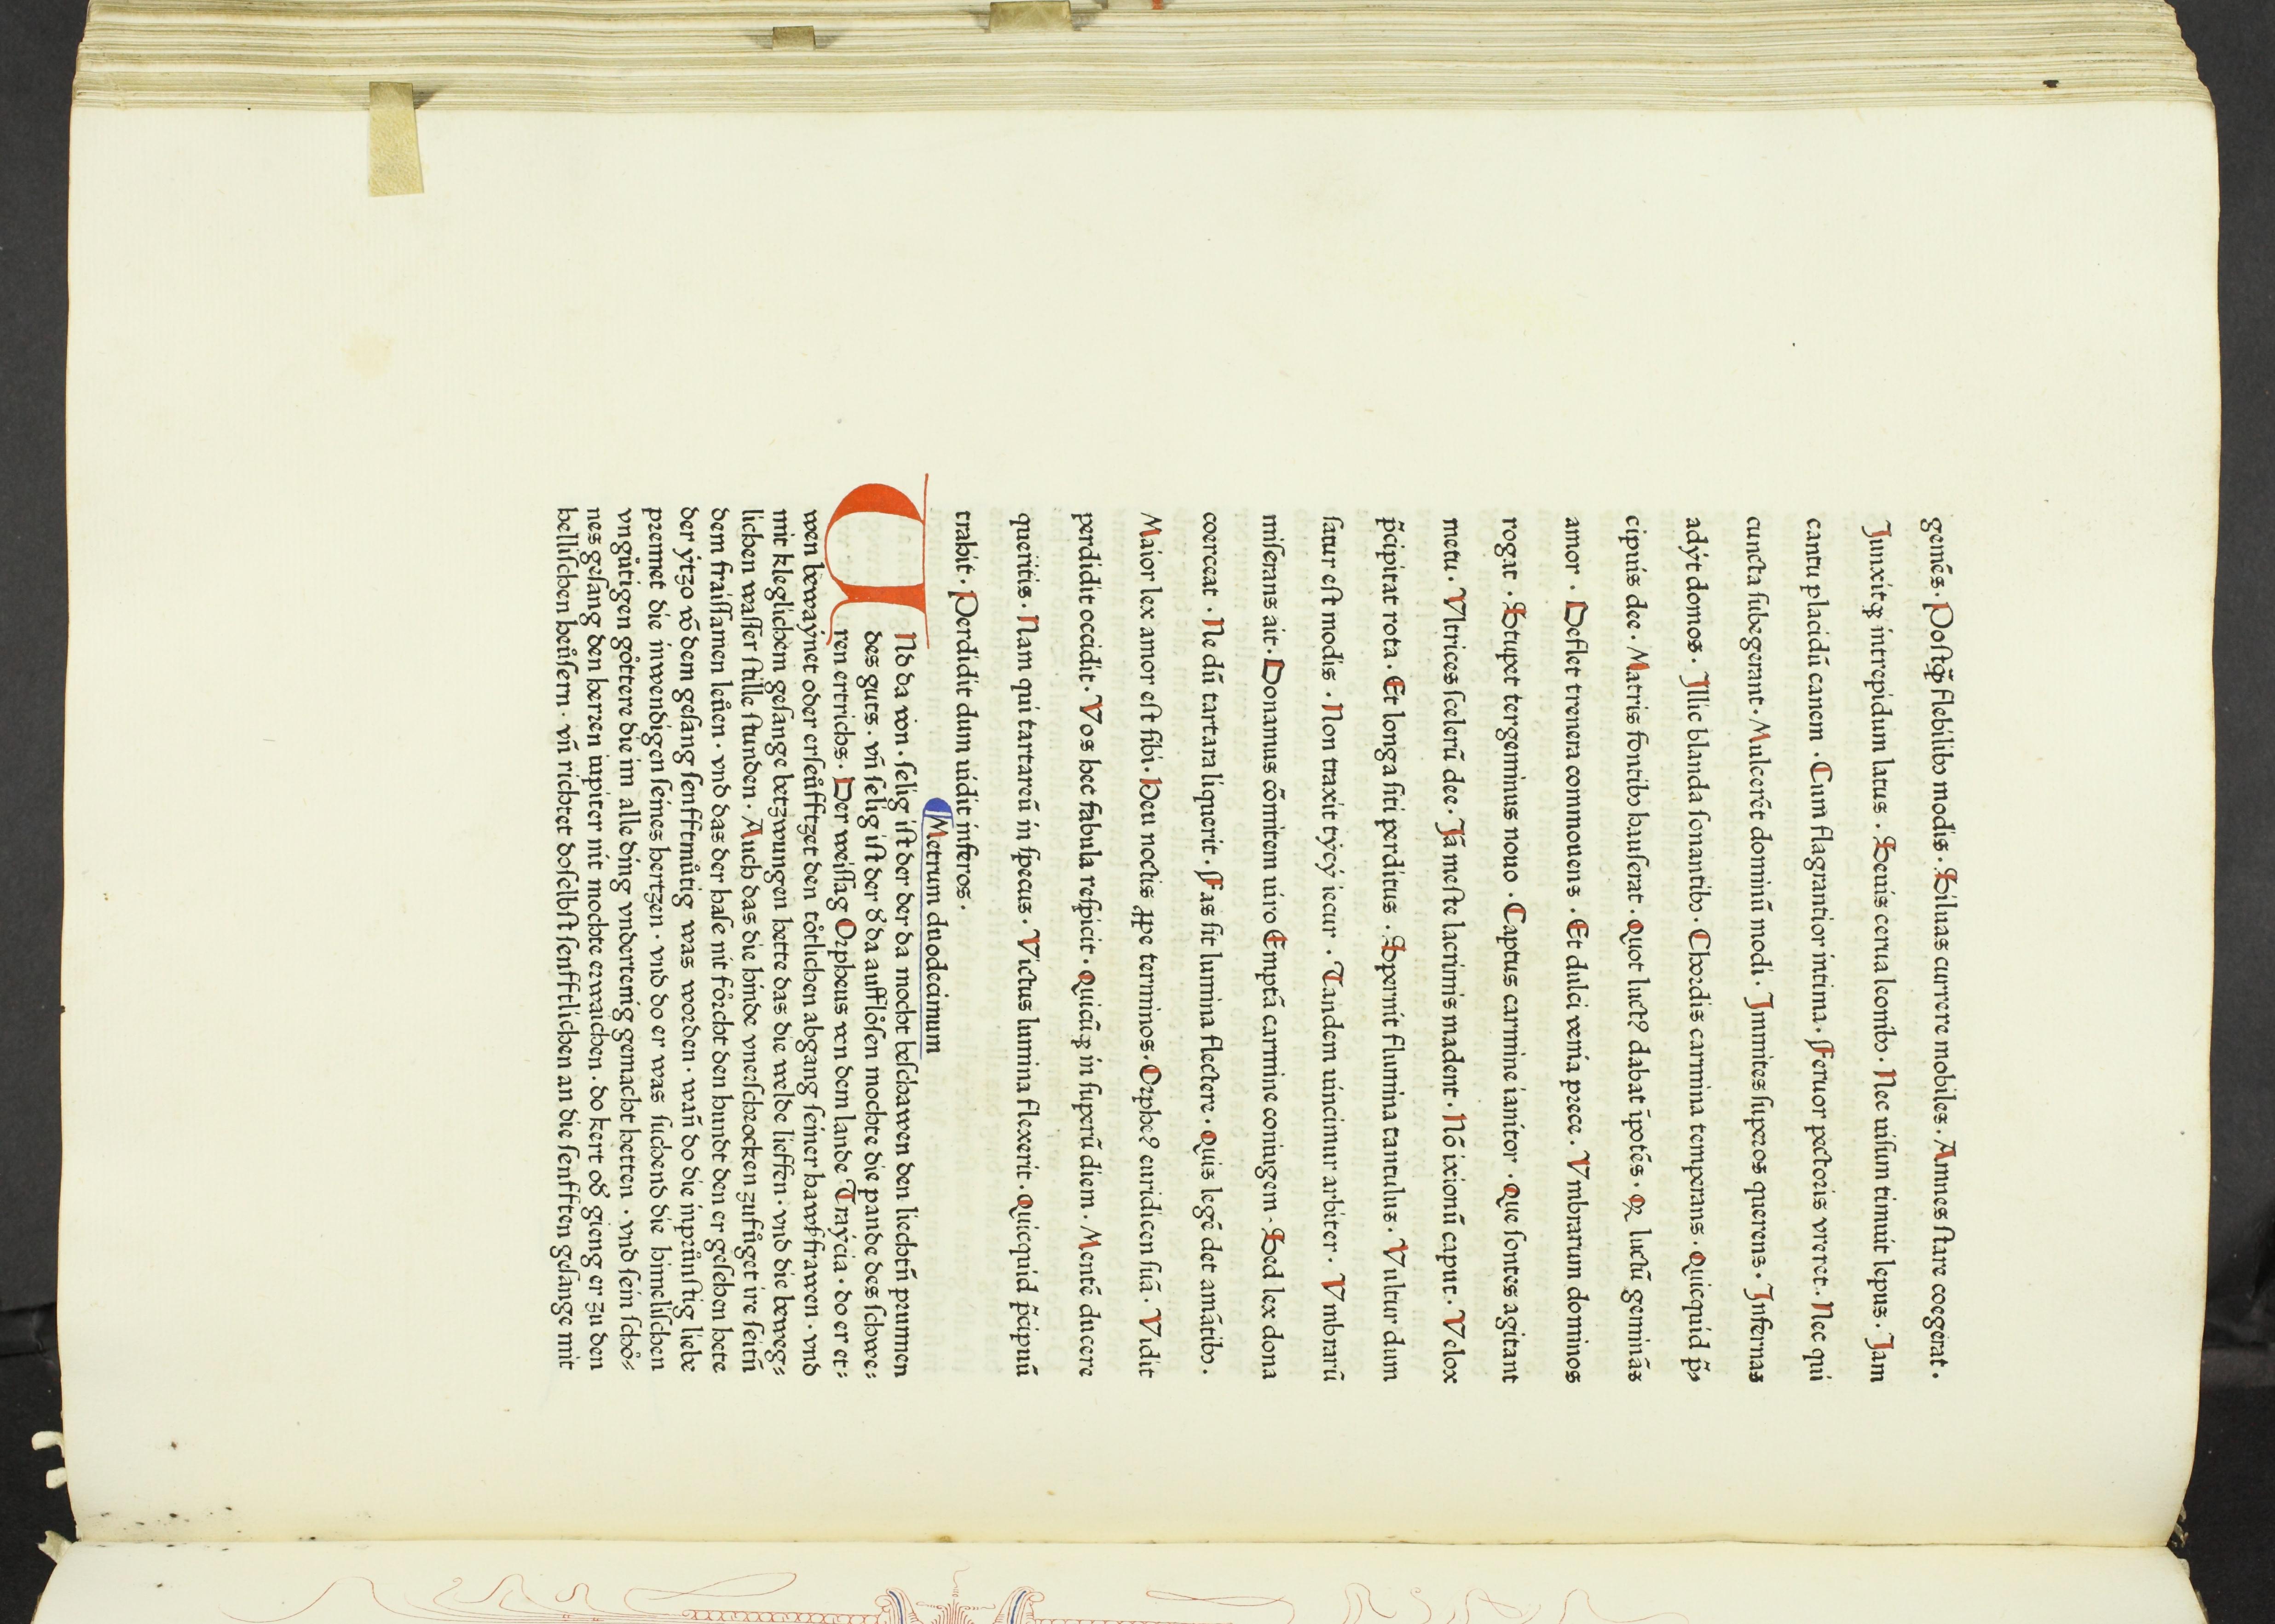 gemēs. Poſtꝙ̄ flebilibꝫ modis. Siluas currere mobiles. Amnes ſtare coegerat.
Junxitqꝫ intrepidum latus. Seuis cerua leonibꝫ. Nec uiſum timuit lepus. Jam
cantu placidū canem. Cum flagrantior intima. Feruor pectoris vreret. Nec qui
cuncta ſubegerant. Mulcerēt dominū modi. Jnmites ſuperos querens. Jnfernas
adÿt domos. Jllic blanda ſonantibꝫ. Chordis carmina temperans. Quicquid p̄ꝫ
cipuis dee. Matris fontibꝫ hauſerat. Quot luctꝰ dabat īpotēs. Qꝛ luctū geminās
amor. Deflet trenera commouens. Et dulci venia prece. Vmbrarum dominos
rogat. Stupet tergeminus nouo. Captus carmine ianitor. Que ſontes agitant
metu. Vltrices ſcelerū dee. Jā meſte lacrimis madent. Nō ixionū caput. Velox
p̄cipitat rota. Et longa ſiti perditus. Spernit flumina tantulus. Vultur dum
ſatur eſt modis. Non traxit tÿcÿ iecur. Tandem uincimur arbiter. Vmbrarū
miſerans ait. Donamus cōmitem uiro Emptā carmine coniugem. Sed lex dona
coerceat. Ne dū tartara liquerit. Fas ſit lumina flectere. Quis legē det amātibꝫ.
Maior lex amor eſt ſibi. Heu noctis ꝓpe terminos. Orpheꝰ euridicen ſuā. Vidit
perdidit occidit. Vos hec fabula reſpicit. Quicūqꝫ in ſuperū diem. Mentē ducere
queritis. Nam qui tartareū in ſpecus. Victus lumina flexerit. Quicquid p̄cipuū
trahit. Perdidit dum uidit inferos.
Metrum duodecimum
UNd da von. ſelig iſt der der da mocht beſchawen den liechtn̄ prunnen
des guts. vn̄ ſelig iſt der d̓ da aufflöſen mochte die pande des ſchwe⸗
ren ertrichs. Der weiſſag Orpheus von dem lande Traÿcia. do er et⸗
wen bewaÿnet oder erſeůfftzet den tötlichen abgang ſeiner hawſfrawen. vnd
mit kleglichem geſange betzwungen hette das die welde lieffen. vnd die beweg⸗
lichen waſſer ſtille ſtunden. Auch das die hinde vnerſchrocken zufůget ire ſeitn̄
dem fraiſſamen leůen. vnd das der haſe nit förcht den hundt den er geſehen hete
der ÿtzo vō dem geſang ſenfftmůtig was worden. wan̄ do die inprůnſtig liebe
prennet die inwendigen ſeines hertzen. vnd do er was ſuchend die himeliſchen
vngůtigen göttere die im alle ding vndertenig gemacht hetten. vnd ſein ſchö⸗
nes geſang den herren iupiter nit mochte erwaichen. do kert od̓ gieng er zu den
helliſchen heůſern. vn̄ richtet doſelbſt ſenfftlichen an die ſenfften geſange mit